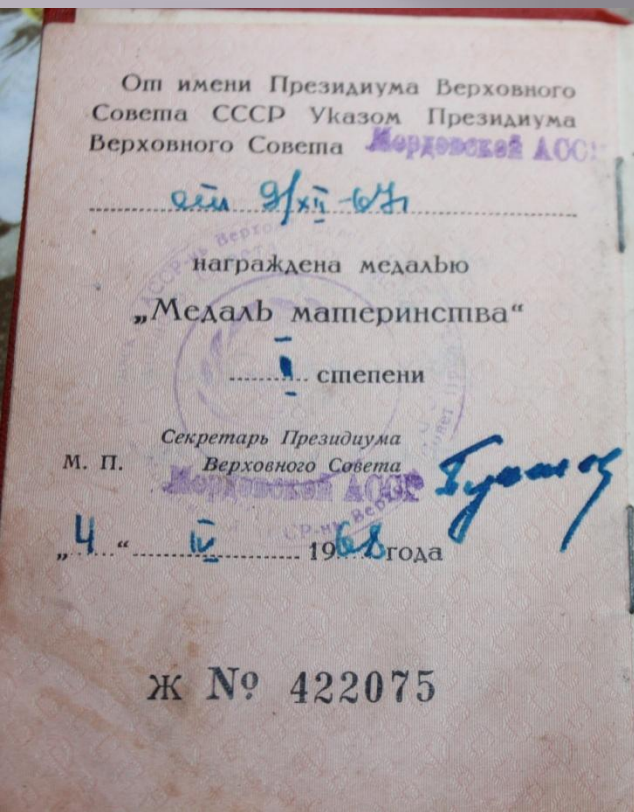 От имени Президиума Верховного
Совета СССР Указом Президиума
Верховного Совета Мордовской АССР
от 9/XII-67г
награждена медалью
„Медаль материнства“
I степени
Секретарь Президиума
М. П. Верховного Совета
Мордовской АССР
„4“ IV 1968 года
Ж № 422075